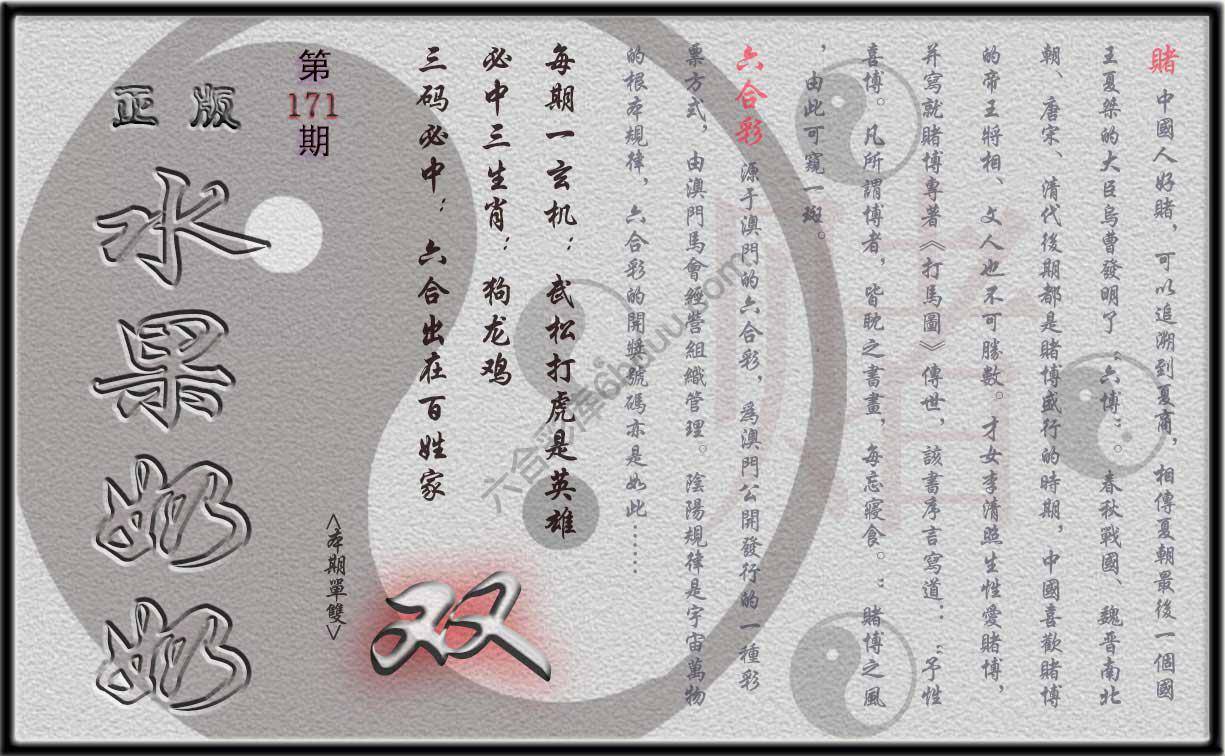 賭 中國人好賭，可以追溯到夏商，相傳夏朝最後一個國
王夏桀的大臣烏曹發明了“六博”。春秋戰國、魏晋南北
朝、唐宋、清代後期都是賭博盛行的時期，中國喜歡賭博
的帝王將相、文人也不可勝數。才女李清照生性愛賭博，
并寫就賭博專著《打馬圖》傳世，該書序言寫道：“予性
喜博。凡所謂博者，皆眈之書晝，每忘寢食。”賭博之風
，由此可窺一斑。
六合彩 源于澳門的六合彩，爲澳門公開發行的一種彩
票方式，由澳門馬會經營組織管理。陰陽規律是宇宙萬物
的根本規律，六合彩的開獎號碼亦是如此……
每期一玄机：武松打虎是英雄
必中三生肖：狗龙鸡
三码必中：六合出在百姓家
<本期單雙>
双
第
171
期
正版
水果奶奶
賭
六合彩库6huuu.com